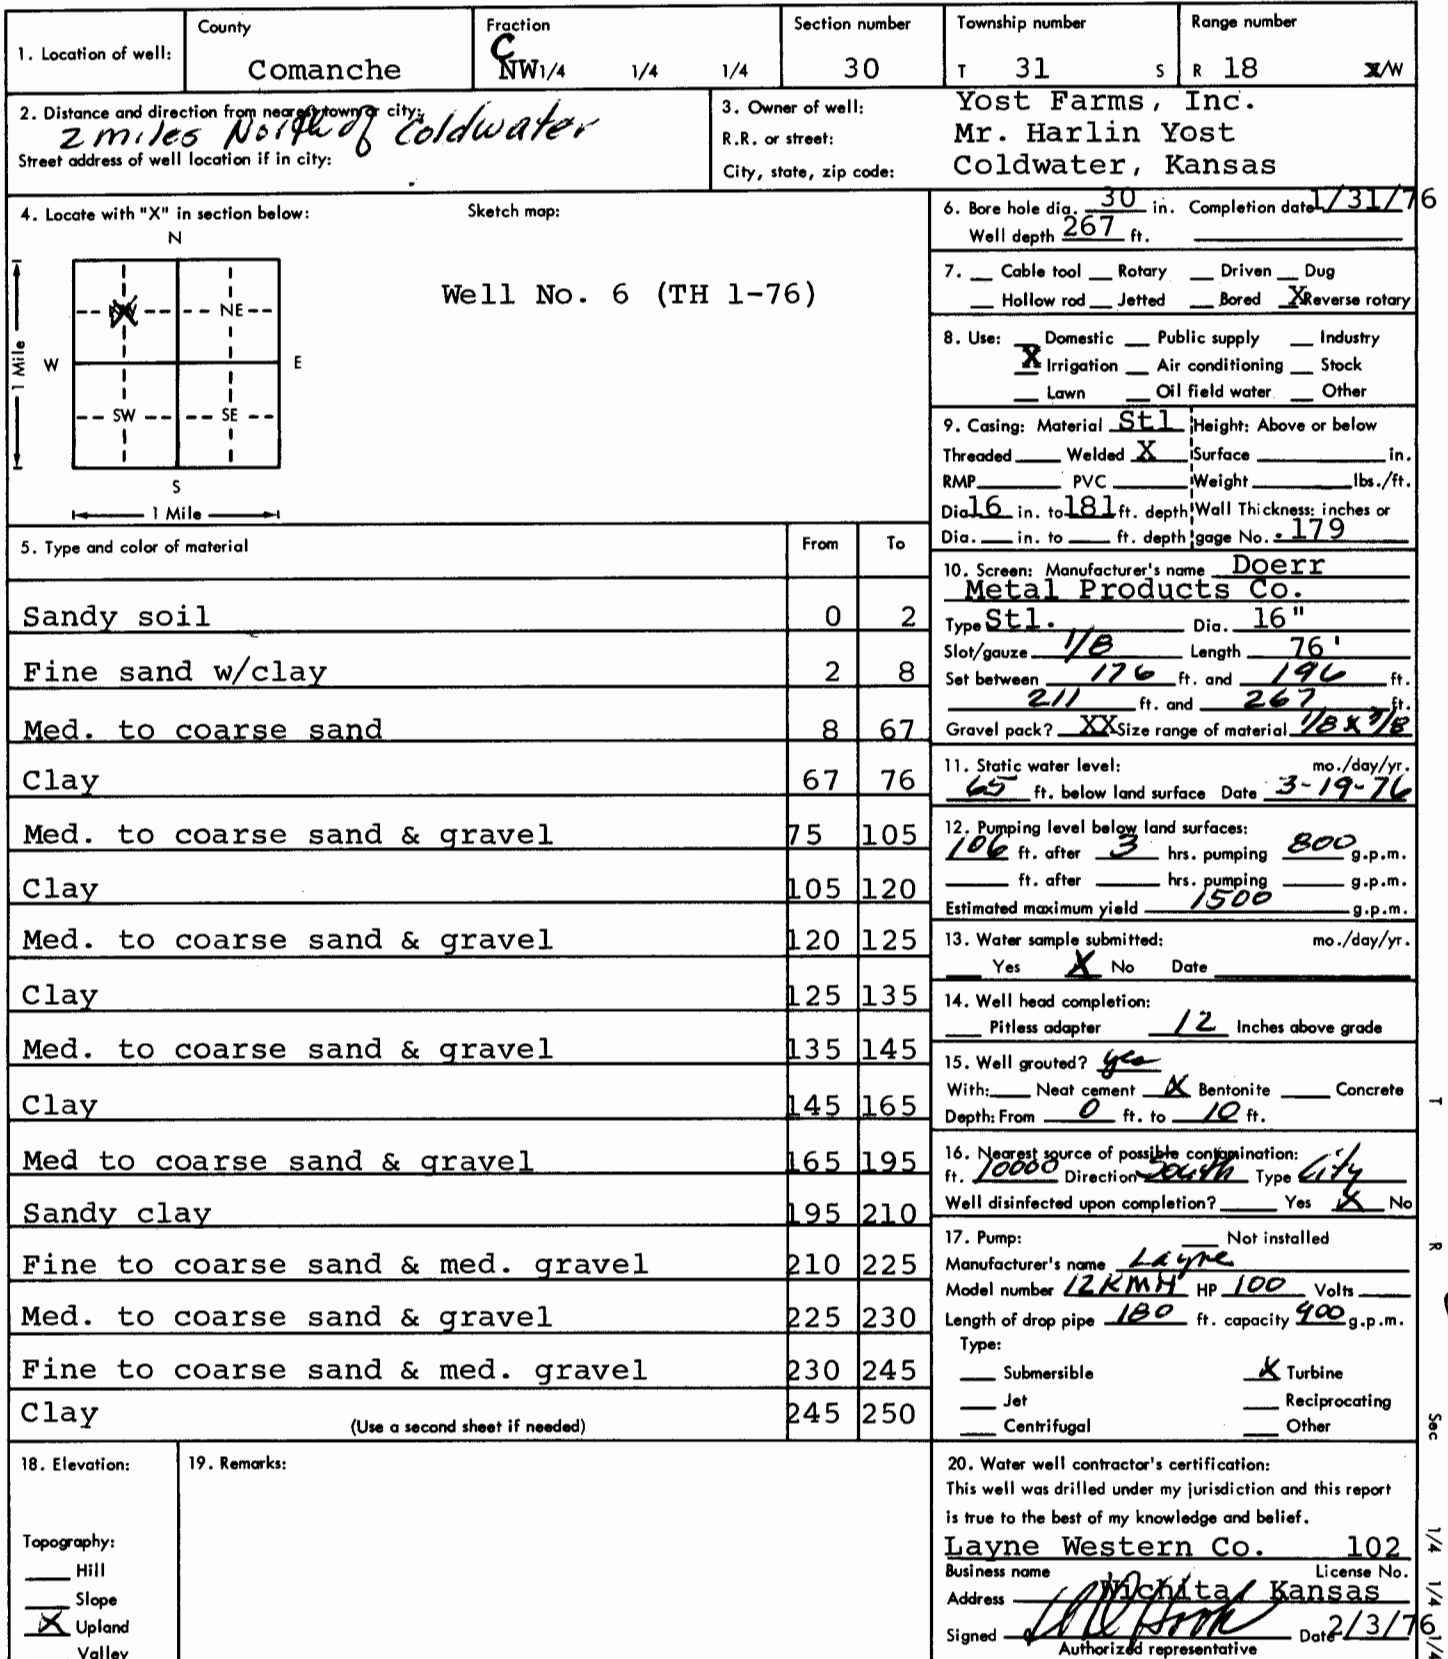 1. Location of well: County Comanche Fraction C NW1/4 1/4 1/4 Section number 30 Township number T 31 S Range number R 18 X/W
2. Distance and direction from nearest town or city: 2 miles North of Coldwater
Street address of well location if in city:
3. Owner of well: Yost Farms, Inc.
R.R. or street: Mr. Harlin Yost
City, state, zip code: Coldwater, Kansas
4. Locate with "X" in section below: Sketch map:
N
NE
W E
1 Mile
SW SE
S
1 Mile
Well No. 6 (TH 1-76)
5. Type and color of material From To
Sandy soil 0 2
Fine sand w/clay 2 8
Med. to coarse sand 8 67
Clay 67 76
Med. to coarse sand & gravel 75 105
Clay 105 120
Med. to coarse sand & gravel 120 125
Clay 125 135
Med. to coarse sand & gravel 135 145
Clay 145 165
Med to coarse sand & gravel 165 195
Sandy clay 195 210
Fine to coarse sand & med. gravel 210 225
Med. to coarse sand & gravel 225 230
Fine to coarse sand & med. gravel 230 245
Clay 245 250
(Use a second sheet if needed)
6. Bore hole dia. 30 in. Completion date 1/31/76
Well depth 267 ft.
7. Cable tool Rotary Driven Dug
Hollow rod Jetted Bored X Reverse rotary
8. Use: Domestic Public supply Industry
X Irrigation Air conditioning Stock
Lawn Oil field water Other
9. Casing: Material Stl Height: Above or below
Threaded Welded X Surface in.
RMP PVC Weight lbs./ft.
Dia. 16 in. to 181 ft. depth Wall Thickness: inches or
Dia. in. to ft. depth gage No. .179
10. Screen: Manufacturer's name Doerr
Metal Products Co.
Type Stl. Dia. 16"
Slot/gauze 1/8 Length 76'
Set between 176 ft. and 196 ft.
211 ft. and 267 ft.
Gravel pack? XX Size range of material 1/8 x 3/8
11. Static water level: mo./day/yr.
65 ft. below land surface Date 3-19-76
12. Pumping level below land surfaces:
106 ft. after 3 hrs. pumping 800 g.p.m.
ft. after hrs. pumping g.p.m.
Estimated maximum yield 1500 g.p.m.
13. Water sample submitted: mo./day/yr.
Yes X No Date
14. Well head completion:
Pitless adapter 12 Inches above grade
15. Well grouted? yes
With: Neat cement X Bentonite Concrete
Depth: From 0 ft. to 10 ft.
16. Nearest source of possible contamination:
ft. 10000 Direction South Type City
Well disinfected upon completion? Yes X No
17. Pump: Not installed
Manufacturer's name Layne
Model number 12KMH HP 100 Volts
Length of drop pipe 180 ft. capacity 900 g.p.m.
Type:
Submersible X Turbine
Jet Reciprocating
Centrifugal Other
18. Elevation:
Topography:
Hill
Slope
X Upland
Valley
19. Remarks:
20. Water well contractor's certification:
This well was drilled under my jurisdiction and this report
is true to the best of my knowledge and belief.
Layne Western Co. 102
Business name License No.
Address Wichita, Kansas
Signed Date 2/3/76
Authorized representative
T
R
Sec
1/4 1/4 1/4